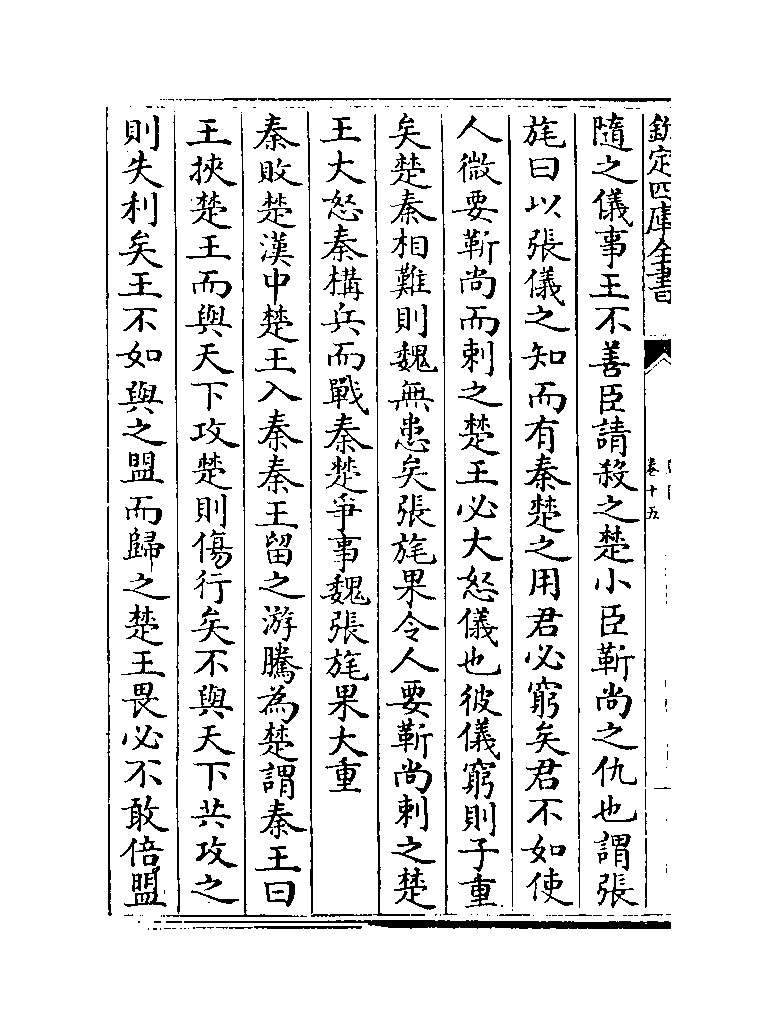 欽定四庫全書
卷十五
隨之儀事王不善臣請殺之楚小臣靳尚之仇也謂張
旄曰以張儀之知而有秦楚之用君必窮矣君不如使
人微要靳尚而刺之楚王必大怒儀也彼儀窮則子重
矣楚秦相難則魏無患矣張旄果令人要靳尚刺之楚
王大怒秦構兵而戰秦楚爭事魏張旄果大重
秦敗楚漢中楚王入秦秦王留之游騰為楚謂秦王曰
王挾楚王而與天下攻楚則傷行矣不與天下共攻之
則失利矣王不如與之盟而歸之楚王畏必不敢倍盟